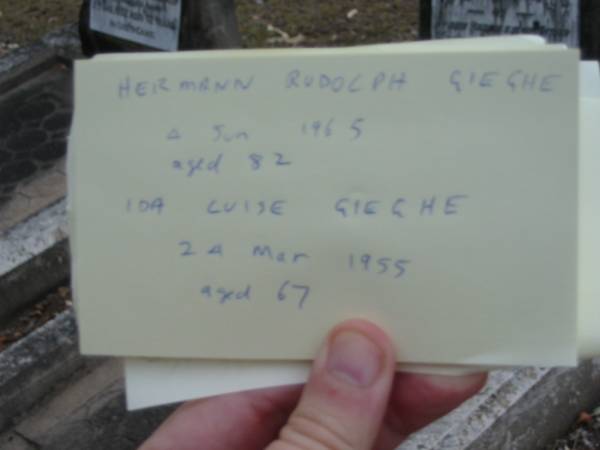 HERMANN RUDOLPH GIEGHE
4 Jun 1965
aged 82
IDA LUISE GIEGHE
24 Mar 1955
aged 67